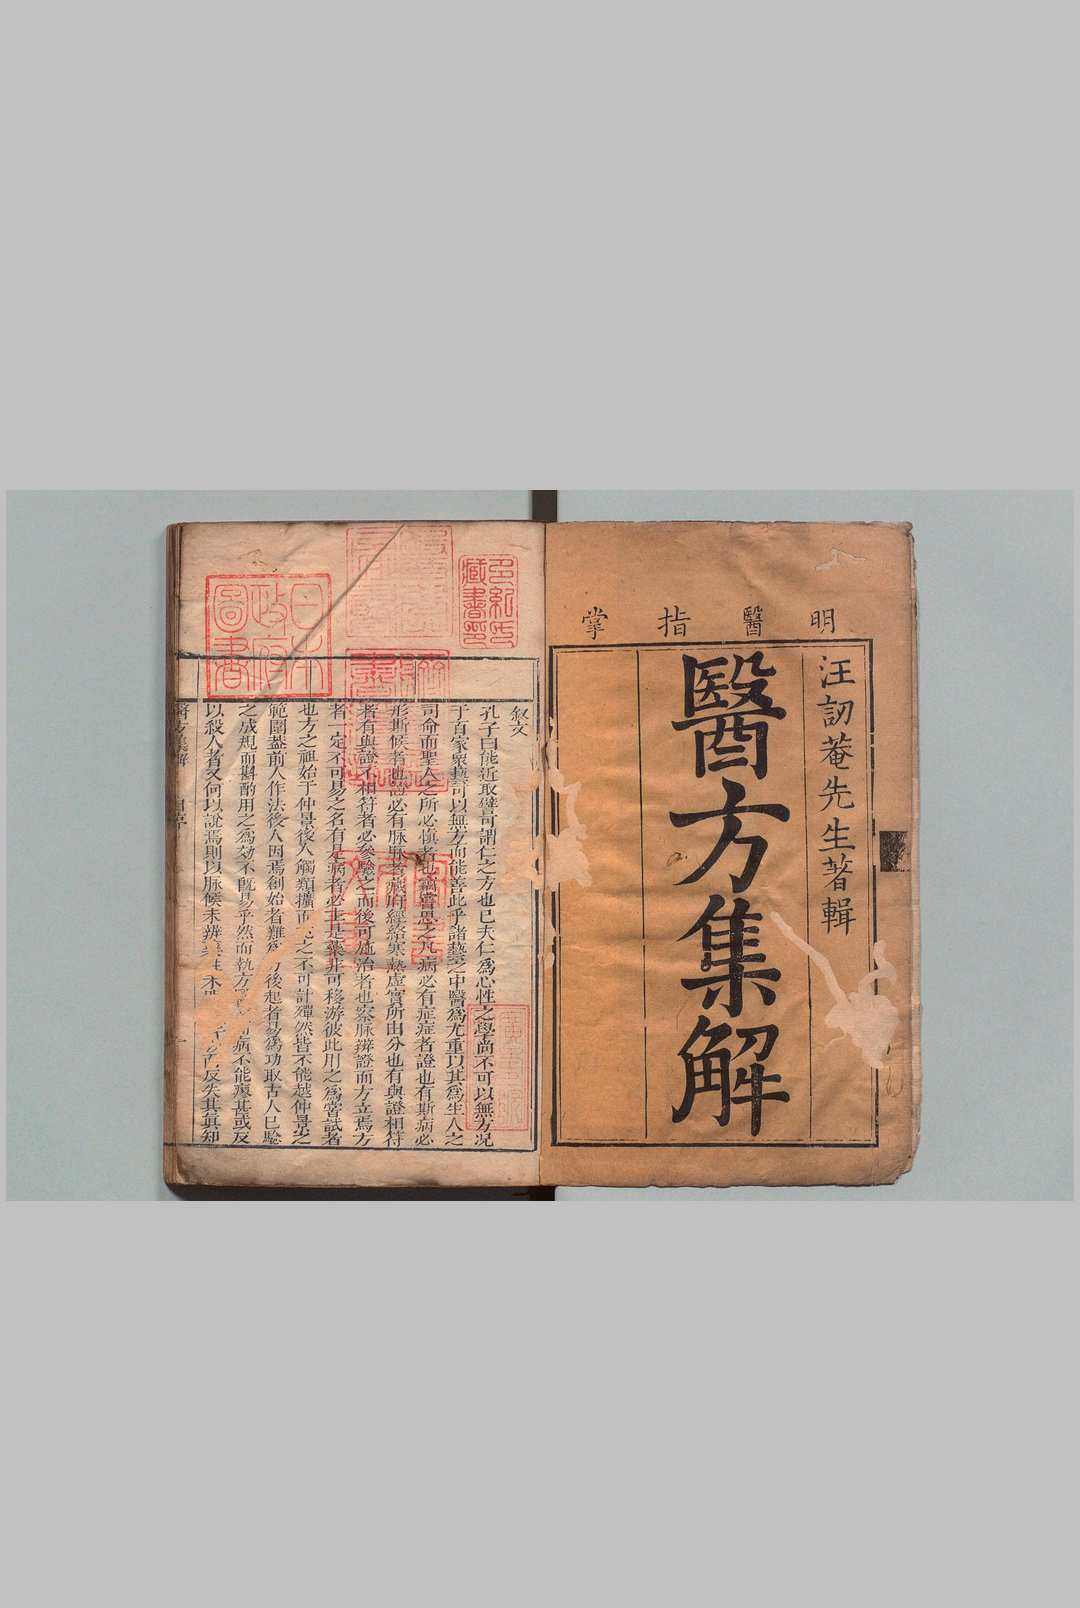 明醫指掌
汪訒菴先生著輯
醫方集解
叙文
孔子曰能近取譬可謂仁之方也已夫仁爲心性之學尚不可以無方况
于百家衆藝可以無方而能善此乎諸藝之中醫爲尤重以其爲生人之
司命而聖人之所必慎者也竊嘗思之凡病必有症症者證也有斯病必
形斯候者也證必有脉脉者臓府經絡寒熱虛實所由分也有與證相符
者有與證不相符者必參驗之而後可施治者也察脉辨證而方立焉方
者一定不可易之名有是病者必主是藥非可移游彼此用之爲嘗試者
也方之祖始于仲景後人觸類擴而之不可計殫然皆不能越仲景之
範圍蓋前人作法後人因焉創始者難爲後起者易爲功取古人已驗
之成規而斟酌用之爲効不既易乎然而執方病不能瘳甚或反
以殺人者又何以說焉則以脉候未辨反失其真知
醫方集解
日本政府圖書
多紀氏藏書印